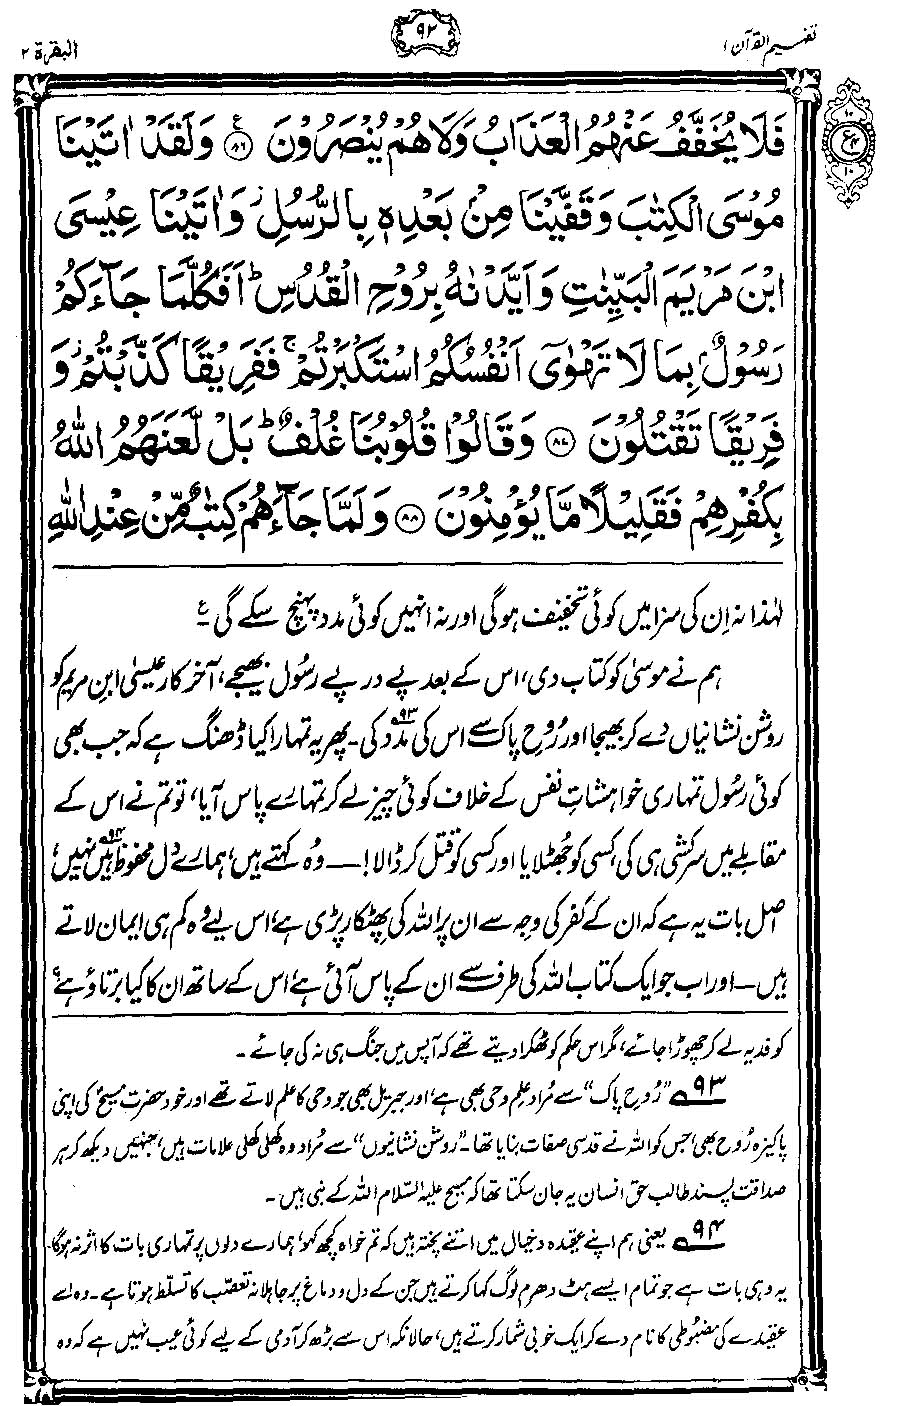 تفہیم القرآن ۱
۹۲
البقرۃ ۲
فَلَا يُخَفَّفُ عَنْهُمُ الْعَذَابُ وَلَا هُمْ يُنْصَرُوْنَ ﴿۸۶﴾ وَلَقَدْ اٰتَيْنَا
مُوْسَى الْكِتٰبَ وَقَفَّيْنَا مِنْۢ بَعْدِهٖ بِالرُّسُلِ ۫ وَاٰتَيْنَا عِيْسَى
ابْنَ مَرْيَمَ الْبَيِّنٰتِ وَاَيَّدْنٰهُ بِرُوْحِ الْقُدُسِ ؕ اَفَكُلَّمَا جَآءَكُمْ
رَسُوْلٌۢ بِمَا لَا تَهْوٰٓى اَنْفُسُكُمُ اسْتَكْبَرْتُمْ ۚ فَفَرِيْقًا كَذَّبْتُمْ ۫ وَ
فَرِيْقًا تَقْتُلُوْنَ ﴿۸۷﴾ وَقَالُوْا قُلُوْبُنَا غُلْفٌ ؕ بَلْ لَّعَنَهُمُ اللّٰهُ
بِكُفْرِهِمْ فَقَلِيْلًا مَّا يُؤْمِنُوْنَ ﴿۸۸﴾ وَلَمَّا جَآءَهُمْ كِتٰبٌ مِّنْ عِنْدِ اللّٰهِ
لہٰذا نہ اِن کی سزا میں کوئی تخفیف ہوگی اور نہ انہیں کوئی مدد پہنچ سکے گی ع
ہم نے موسیٰ کو کتاب دی، اس کے بعد پے در پے رسول بھیجے، آخرکار عیسیٰ ابنِ مریم کو
روشن نشانیاں دے کر بھیجا اور رُوحِ پاک سے اس کی مدد کی۔۹۳ پھر یہ تمہارا کیا ڈھنگ ہے کہ جب بھی
کوئی رسُول تمہاری خواہشاتِ نفس کے خلاف کوئی چیز لے کر تمہارے پاس آیا، تو تم نے اس کے
مقابلے میں سرکشی ہی کی، کسی کو جھٹلایا اور کسی کو قتل کر ڈالا! — وُہ کہتے ہیں، ہمارے دل محفوظ ہیں۹۴ نہیں،
اصل بات یہ ہے کہ ان کے کفر کی وجہ سے ان پر اللہ کی پھٹکار پڑی ہے، اس لیے وہ کم ہی ایمان لاتے
ہیں — اور اب جو ایک کتاب اللہ کی طرف سے ان کے پاس آئی ہے، اس کے ساتھ ان کا کیا برتاؤ ہے؟
کو فدیہ لے کر چھوڑا جائے، مگر اس حکم کو ٹھکرا دیتے تھے کہ آپس میں جنگ ہی نہ کی جائے۔
۹۳ "رُوحِ پاک" سے مُراد علم وحی بھی ہے، اور جبریل بھی جو وحی کا علم لاتے تھے اور خود حضرت مسیحؑ کی اپنی
پاکیزہ رُوح بھی، جس کو اللہ نے قدسی صفات بنایا تھا۔ "روشن نشانیوں" سے مُراد وہ کھلی کھلی علامات ہیں، جنہیں دیکھ کر ہر
صداقت پسند طالبِ حق انسان یہ جان سکتا تھا کہ مسیح علیہ السّلام اللہ کے نبی ہیں۔
۹۴ یعنی ہم اپنے عقیدہ و خیال میں اتنے پختہ ہیں کہ تم خواہ کچھ کہو، ہمارے دلوں پر تمہاری بات کا اثر نہ ہوگا۔
یہ وہی بات ہے جو تمام ایسے ہٹ دھرم لوگ کہا کرتے ہیں جن کے دل و دماغ پر جاہلانہ تعصّب کا تسلّط ہوتا ہے۔ وہ اسے
عقیدے کی مضبُوطی کا نام دے کر ایک خوبی شمار کرتے ہیں، حالانکہ اس سے بڑھ کر آدمی کے لیے کوئی عیب نہیں ہے کہ وہ